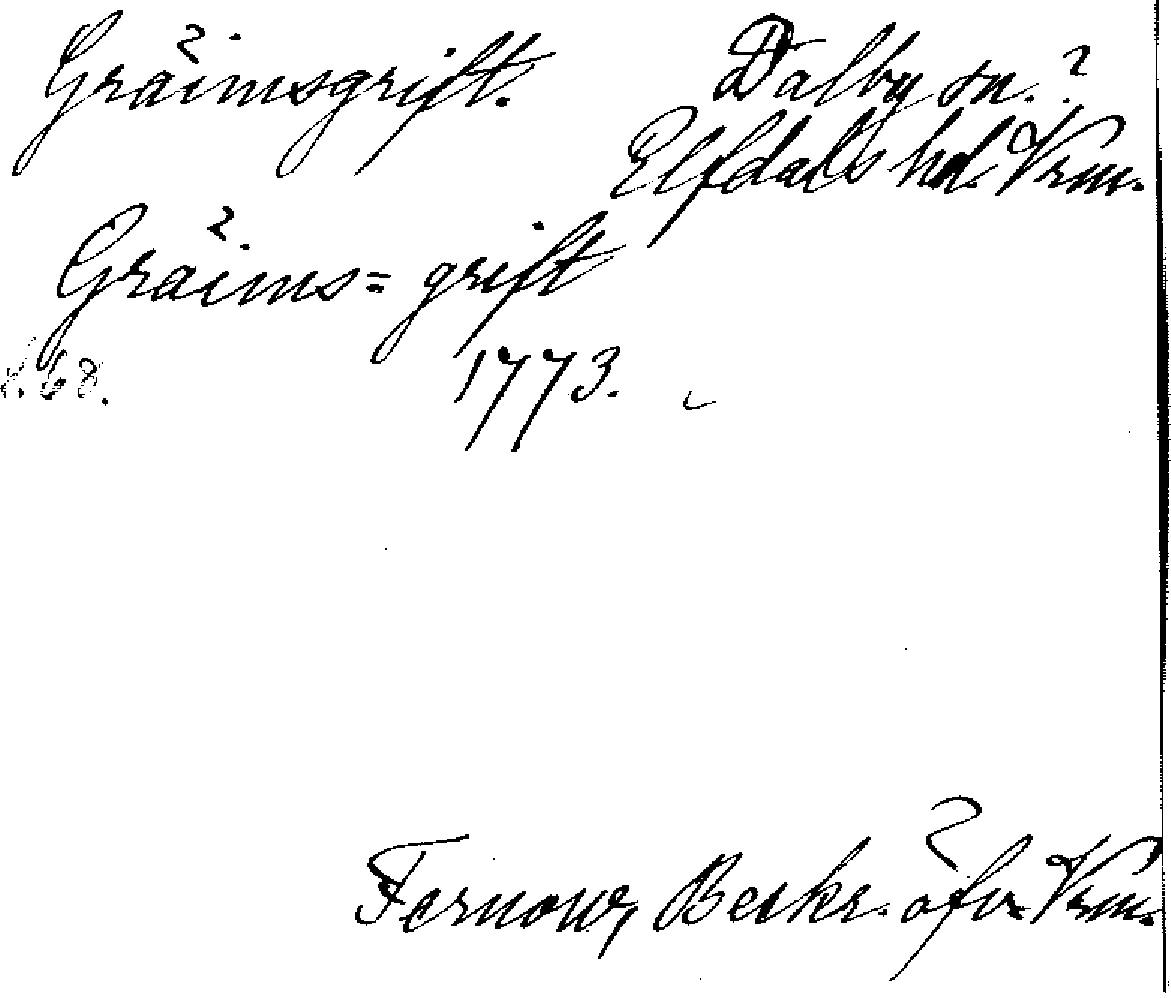 Gräimsgrift. Dalby sn.?
Elfdals hd. Vrm.
Gräims= grift
s. 68. 1773.
Fernow, Beskr. öfv. Vrm.